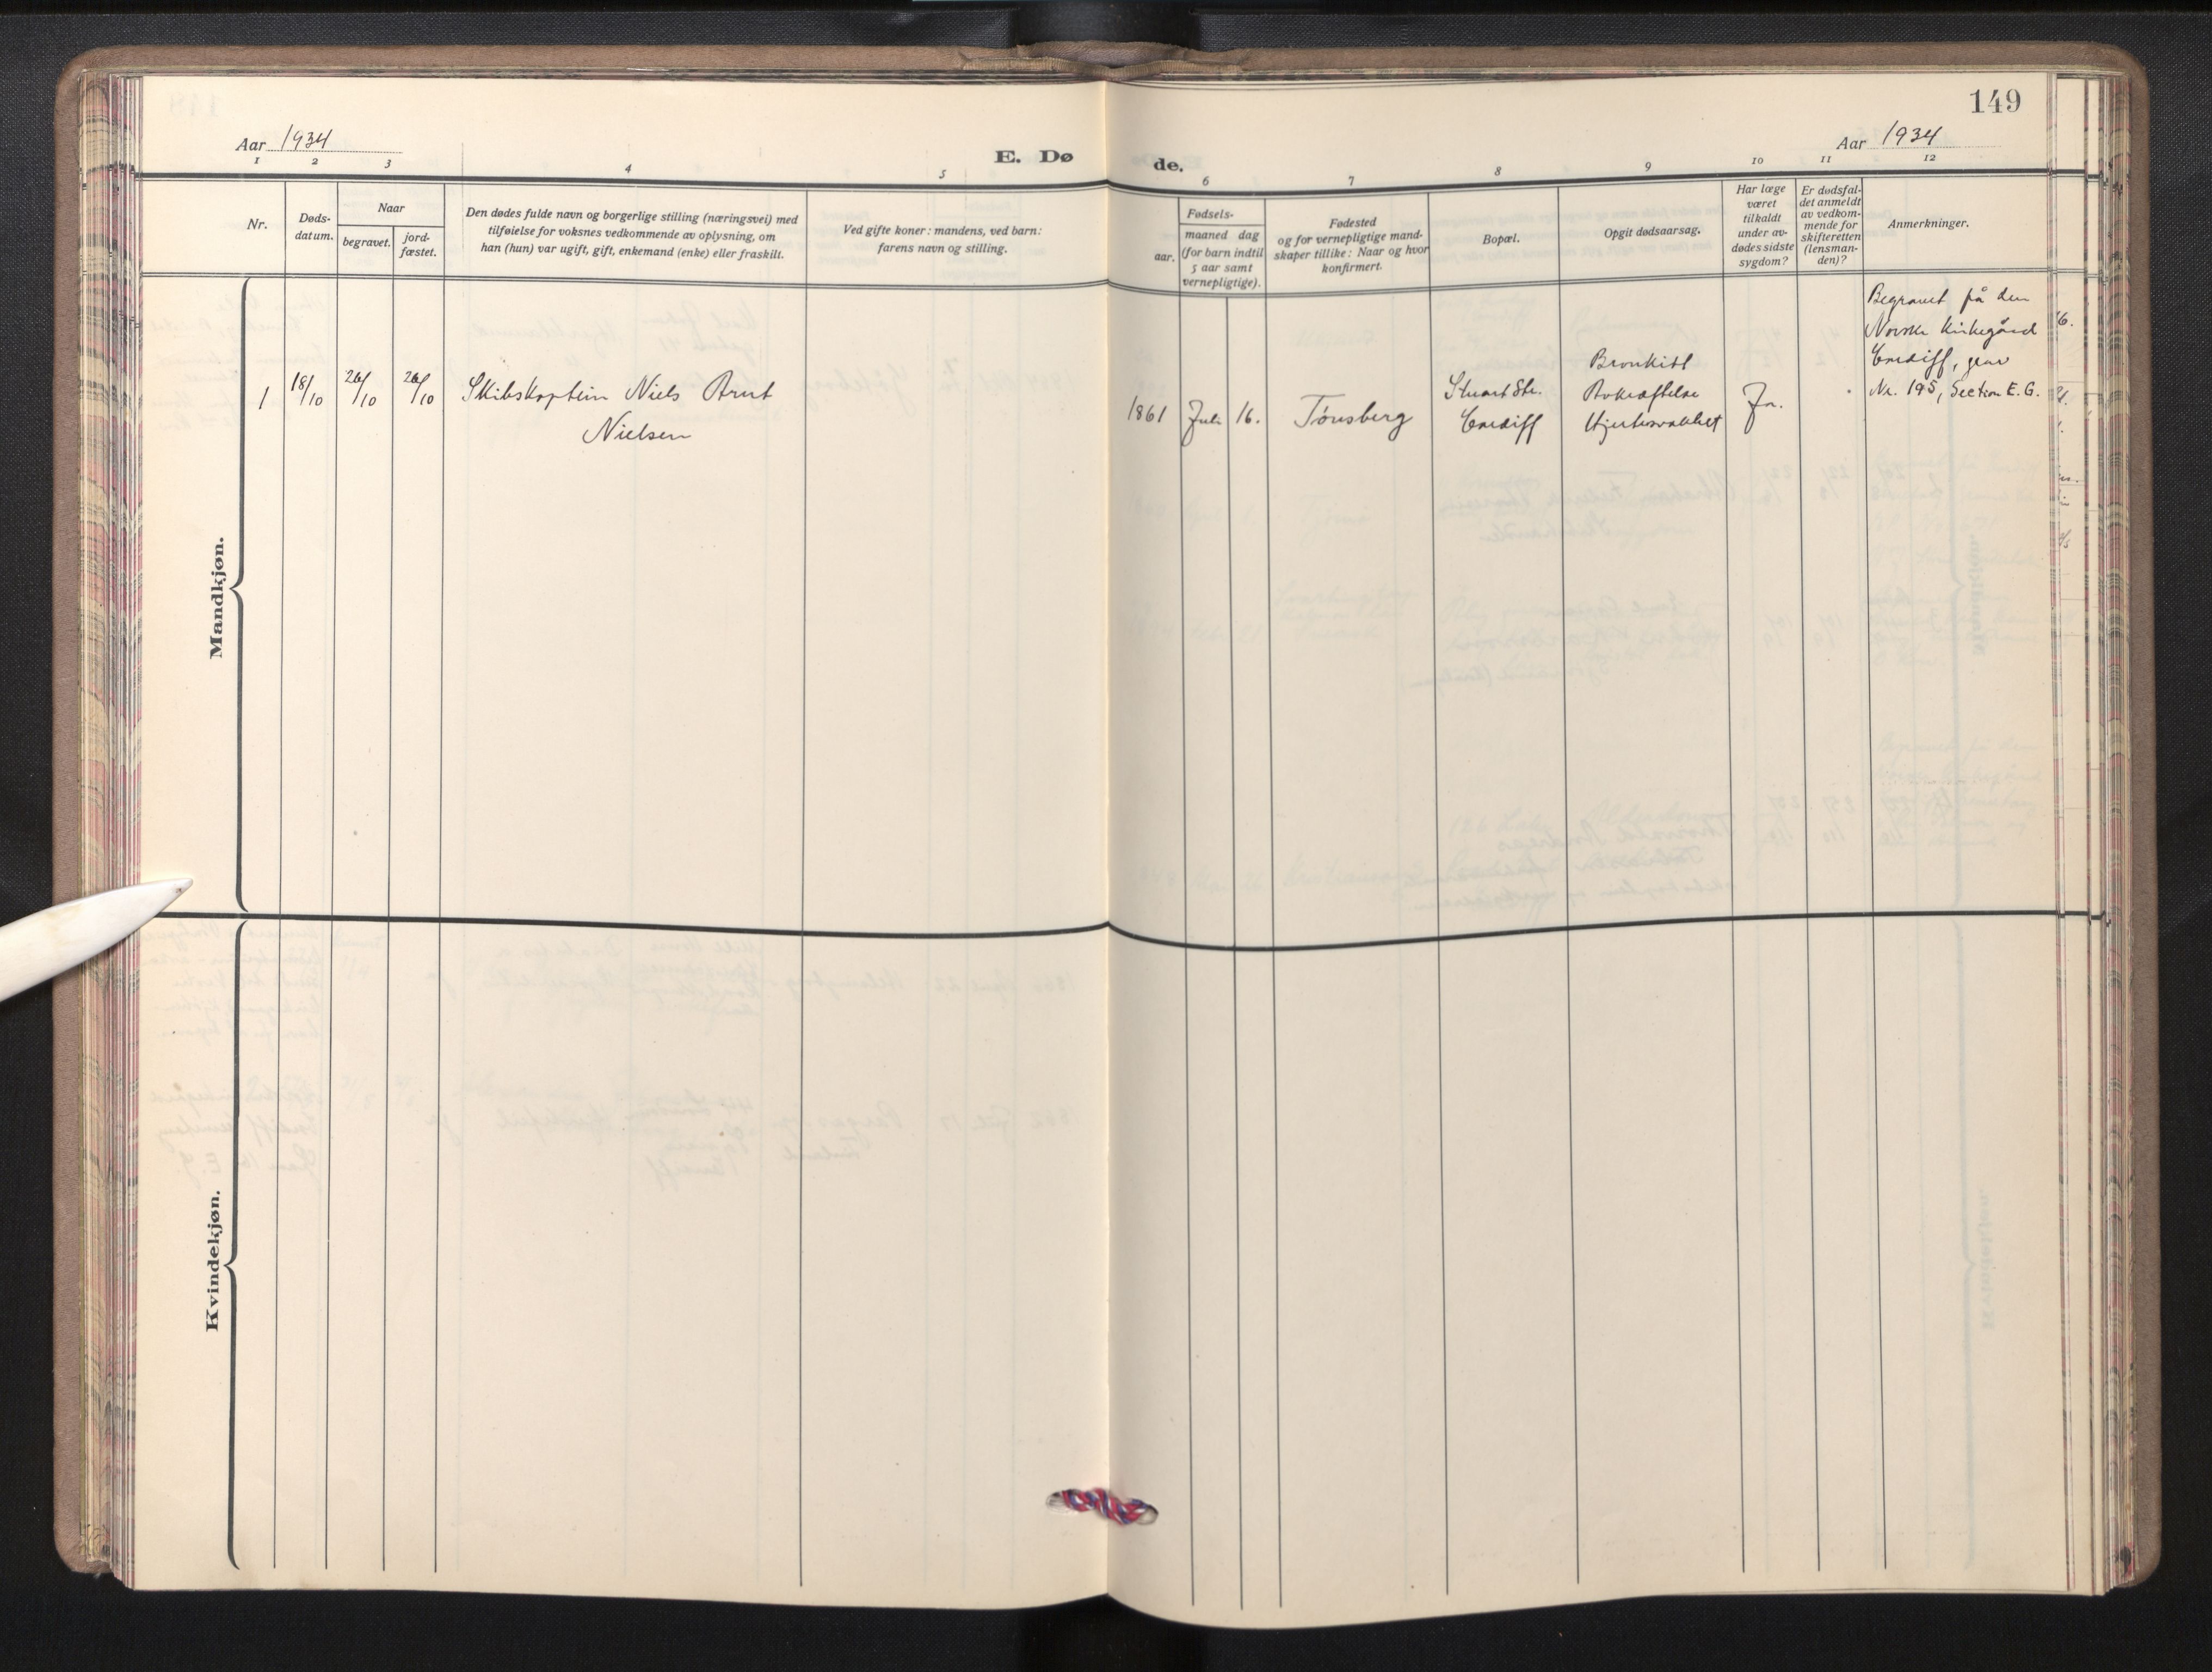 149
Aar 1934
E. Dø
de.
Aar 1934
1 2 3 4 5 6 7 8 9 10 11 12
Nr.
Døds-
datum.
Naar
begravet.
jord-
fæstet.
Den dødes fulde navn og borgerlige stilling (næringsvei) med
tilføielse for voksnes vedkommende av oplysning, om
han (hun) var ugift, gift, enkemand (enke) eller fraskilt.
Ved gifte koner: mandens, ved barn:
farens navn og stilling.
Fødsels-
aar.
maaned dag
(for barn indtil
5 aar samt
vernepligtige).
Fødested
og for vernepligtige mand-
skaper tillike: Naar og hvor
konfirmert.
Bopæl.
Opgit dødsaarsag.
Har læge
været
tilkaldt
under av-
dødes sidste
sygdom?
Er dødsfal-
det anmeldt
av vedkom-
mende for
skifteretten
(lensman-
den)?
Anmerkninger.
Mandkjøn.
1
18/10
26/10
26/10
Skibskaptein Niels Arnt
Nielsen
1861
Juli
16.
Tønsberg
Stuart Str.
Cardiff
Bronkitt
Avkræftelse
Hjertesvakhet
Ja.
Begravet på den
Norske Kirkegård
Cardiff, grav
Nr. 195, Section E.G.
Kvindekjøn.